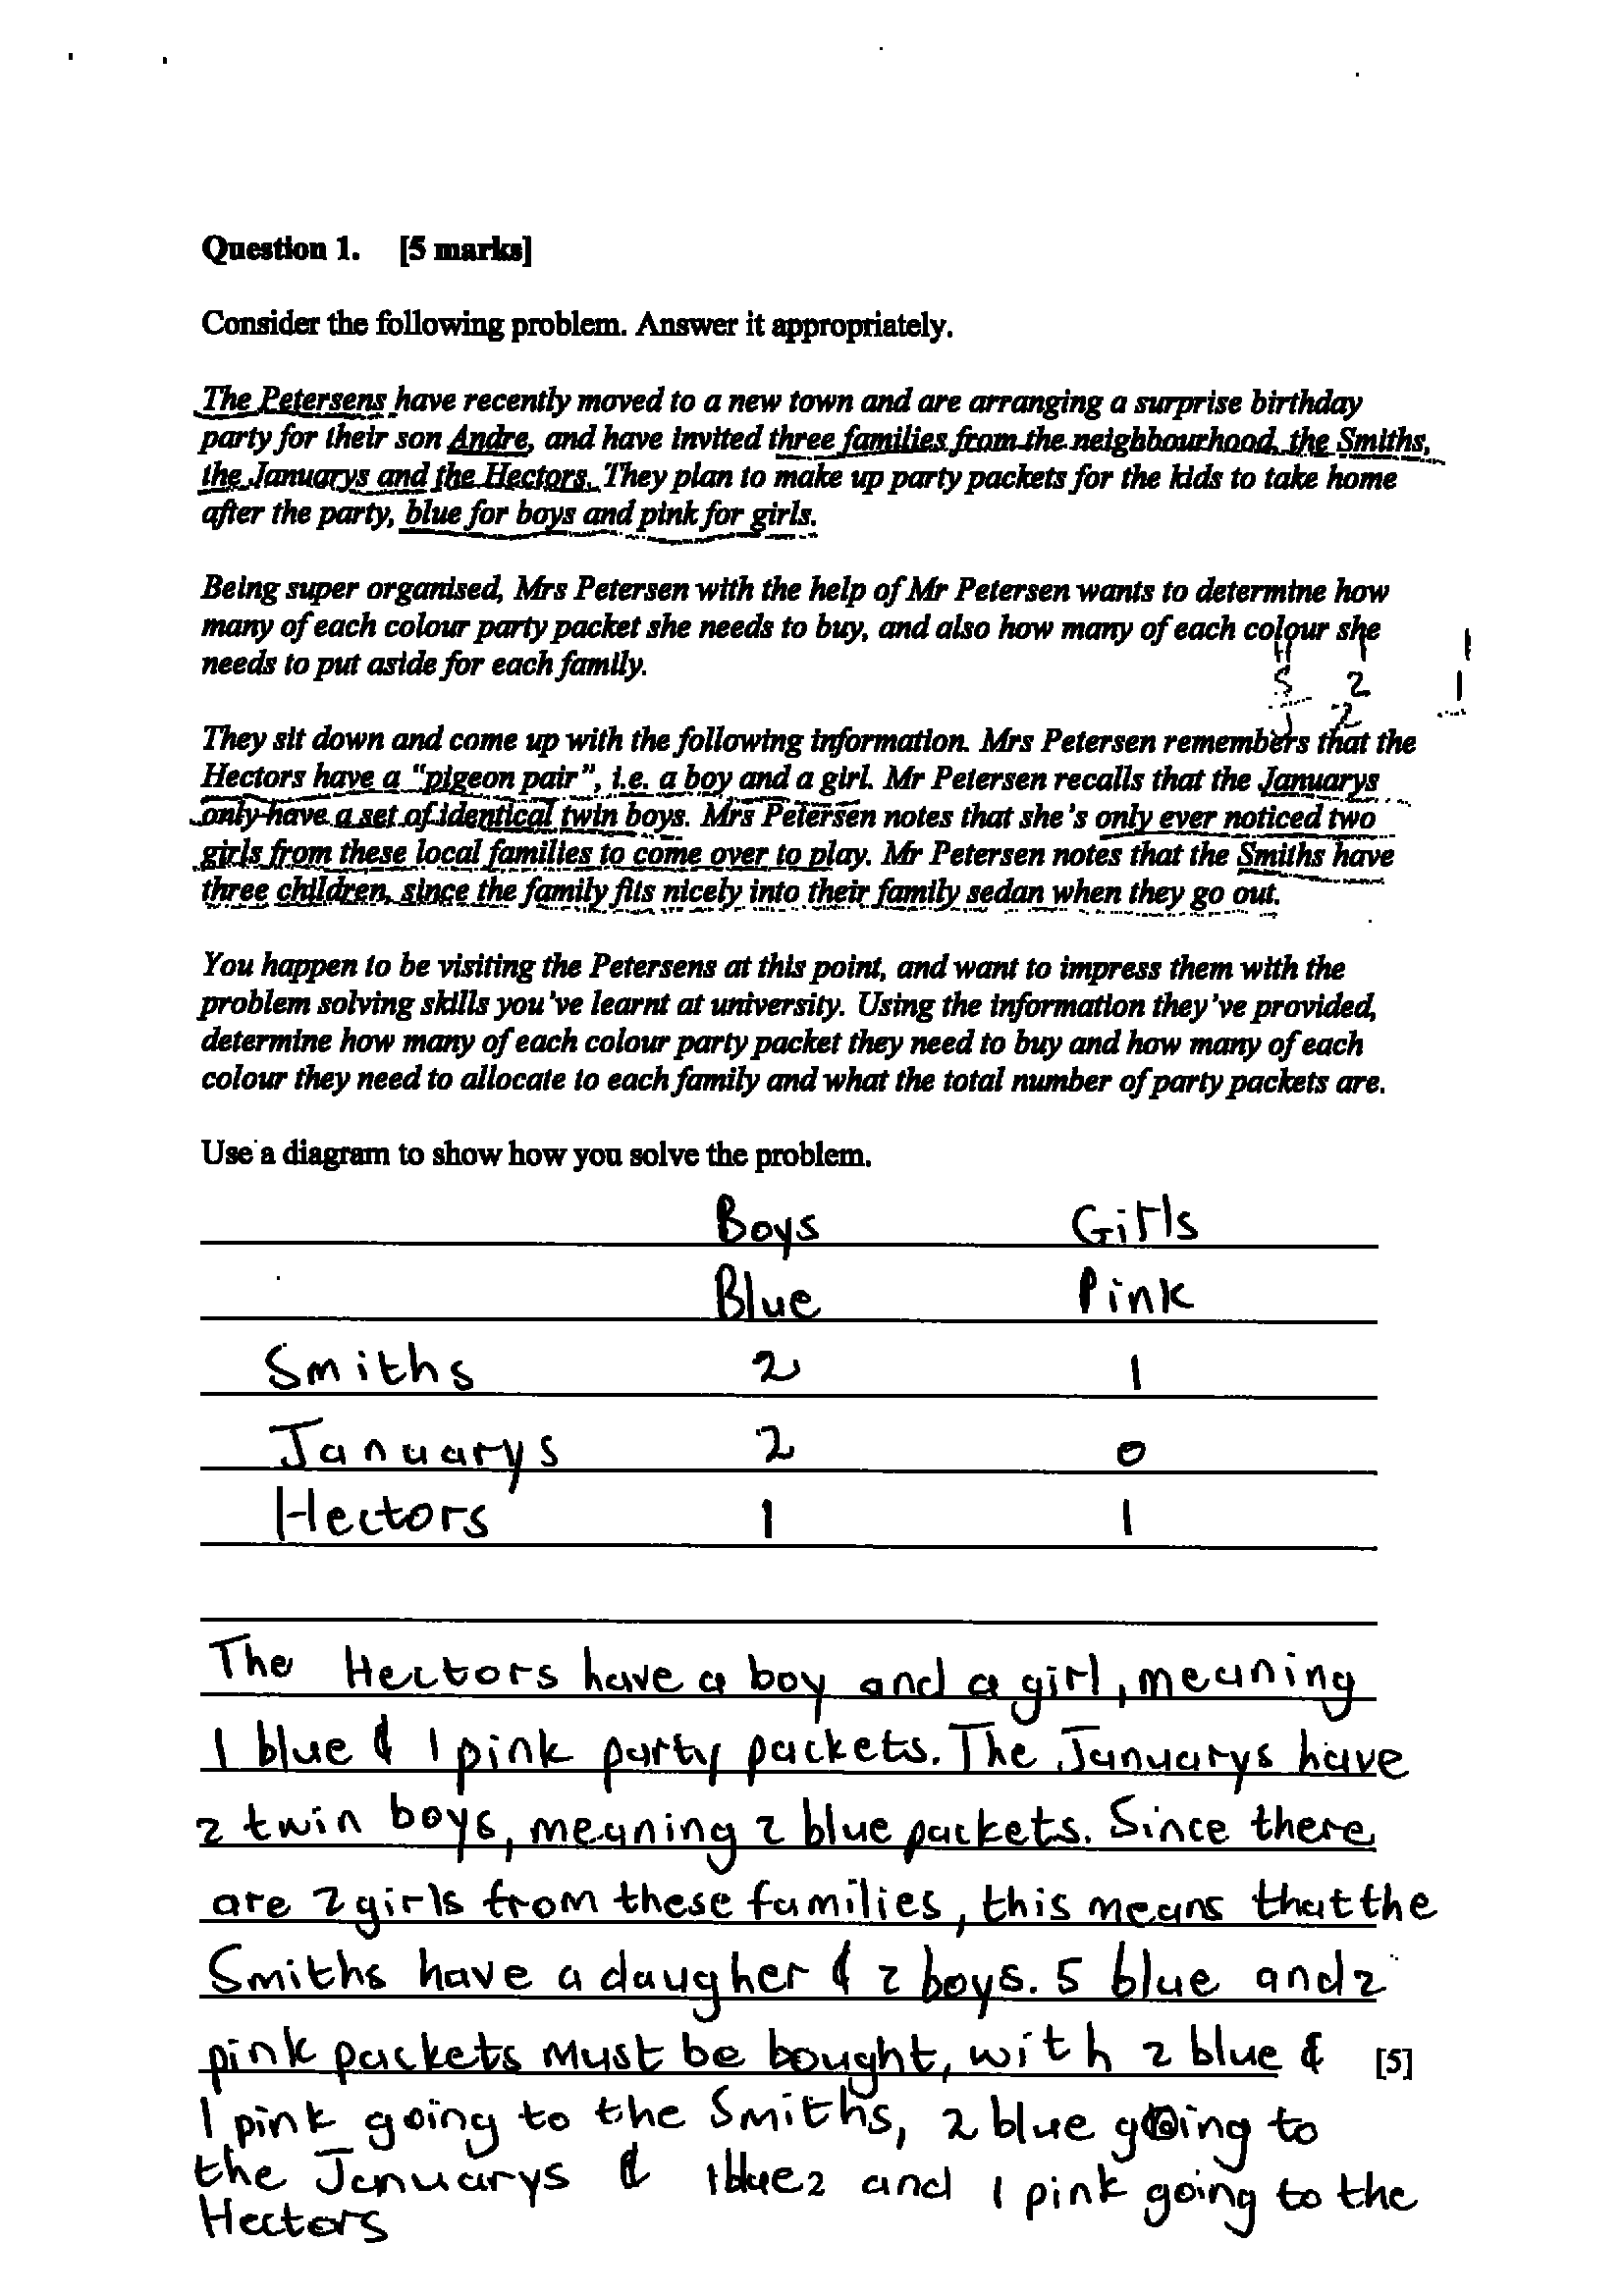 Question 1. [5 marks]
Consider the following problem. Answer it appropriately.
The Petersens have recently moved to a new town and are arranging a surprise birthday
party for their son Andre, and have invited three families from the neighbourhood, the Smiths,
the Januarys and the Hectors. They plan to make up party packets for the kids to take home
after the party, blue for boys and pink for girls.
Being super organised, Mrs Petersen with the help of Mr Petersen wants to determine how
many of each colour party packet she needs to buy, and also how many of each colour she
needs to put aside for each family.
H 1 1
S 2 1
J 2
They sit down and come up with the following information. Mrs Petersen remembers that the
Hectors have a "pigeon pair", i.e. a boy and a girl. Mr Petersen recalls that the Januarys
only have a set of identical twin boys. Mrs Petersen notes that she's only ever noticed two
girls from these local families to come over to play. Mr Petersen notes that the Smiths have
three children, since the family fits nicely into their family sedan when they go out.
You happen to be visiting the Petersens at this point, and want to impress them with the
problem solving skills you've learnt at university. Using the information they've provided,
determine how many of each colour party packet they need to buy and how many of each
colour they need to allocate to each family and what the total number of party packets are.
Use a diagram to show how you solve the problem.
Boys Girls
Blue Pink
Smiths 2 1
Januarys 2 0
Hectors 1 1
The Hectors have a boy and a girl, meaning
1 blue & 1 pink party packets. The Januarys have
2 twin boys, meaning 2 blue packets. Since there
are 2 girls from these families, this means that the
Smiths have a daugher & 2 boys. 5 blue and 2
pink packets must be bought, with 2 blue & [5]
1 pink going to the Smiths, 2 blue going to
the Januarys & 1 blue and 1 pink going to the
Hectors